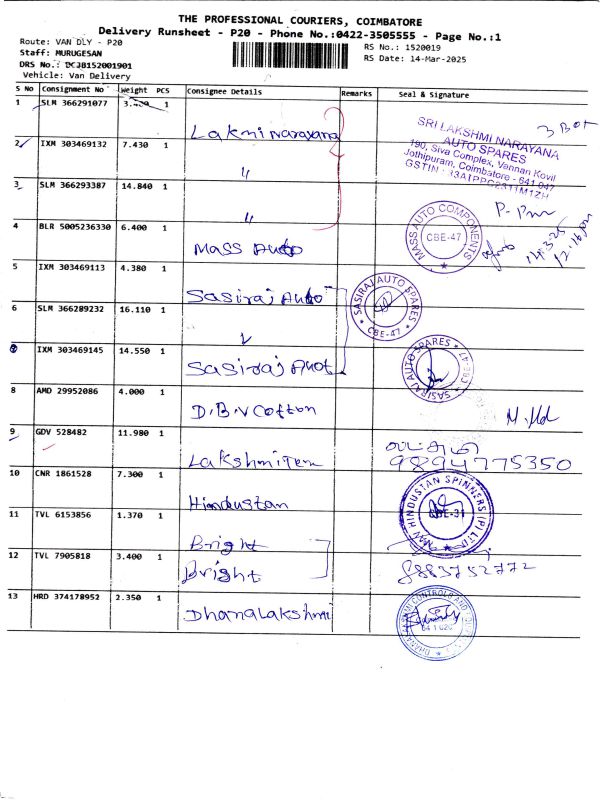 THE PROFESSIONAL COURIERS, COIMBATORE
Delivery Runsheet - P20 - Phone No.:0422-3505555 - Page No.:1
Route: VAN DLY - P20
Staff: MURUGESAN
DRS No.: DCJB152001901
Vehicle: Van Delivery
RS No.: 1520019
RS Date: 14-Mar-2025
S No Consignment No Weight PCS Consignee Details Remarks Seal & Signature
1 SLM 366291077 1 Lakmi Narayana
3 Bot
SRI LAKSHMI NARAYANA
AUTO SPARES
190, Siva Complex, Vannan Kovil
Jothipuram, Coimbatore - 641 047
2 IXM 303469132 7.430 1 "
3 SLM 366293387 14.840 1 "
4 BLR 5005236330 6.400 1 Mass Auto
MASS AUTO COMPONENTS
CBE-47
14.3.25
5 IXM 303469113 4.380 1 Sasiraj Auto
SASIRAJ AUTO SPARES
CBE-47
6 SLM 366289232 16.110 1
7 IXM 303469145 14.550 1 Sasiraj Auot
SASIRAJ AUTO SPARES
CBE-47
8 AMD 29952086 4.000 1 D.B.V Cotton
9 GDV 528482 11.980 1 Lakshmi Tem
9894775350
10 CNR 1861528 7.300 1 Hindustan
HINDUSTAN SPINNERS (P) LTD
CBE-31
11 TVL 6153856 1.370 1 Bright
12 TVL 7905818 3.400 1 Bright
8883752772
13 HRD 374178952 2.350 1 Dhanalakshmi